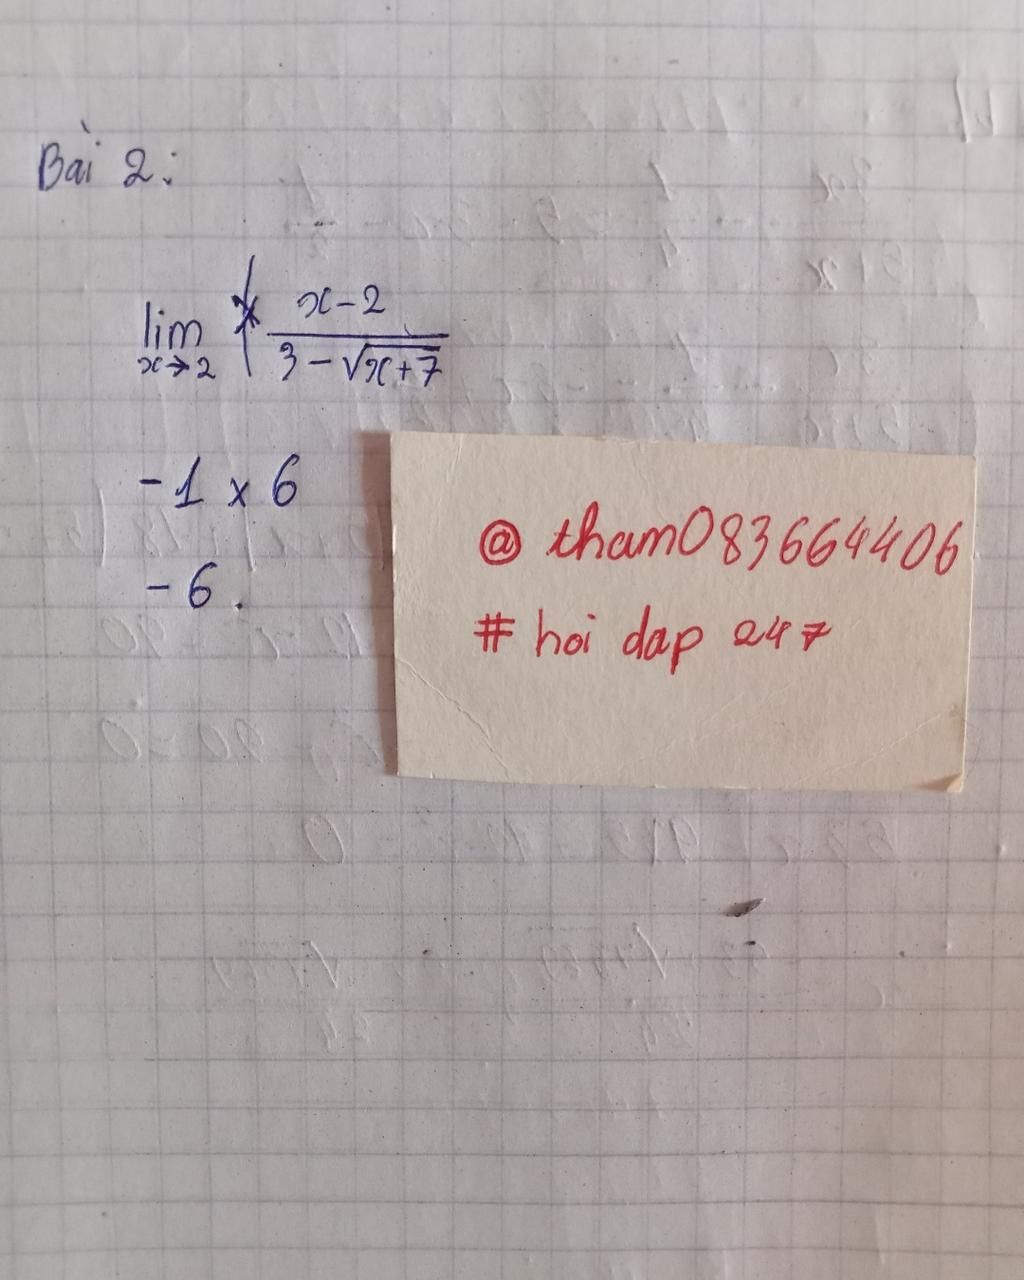 Bài 2:
lim x→2 x-2 / 3-√x+7
-1 x 6
-6.
@ tham083664406
# hoi dap 247